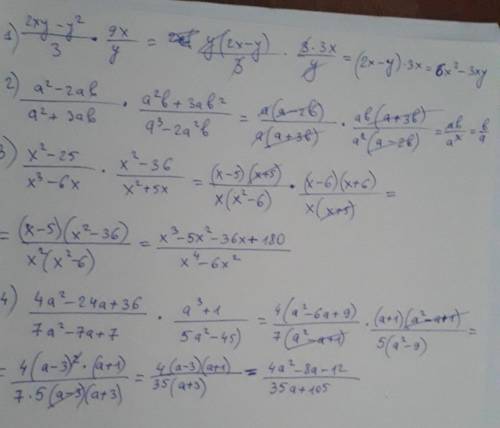 1) (2xy-y²)/3 · 9x/y = y(2x-y)/3 · 3·3x/y = (2x-y)·3x = 6x²-3xy
2) (a²-2ab)/(a²+3ab) · (a²b+3ab²)/(a³-2a²b) = a(a-2b)/a(a+3b) · ab(a+3b)/a²(a-2b) = ab/a² = b/a
3) (x²-25)/(x³-6x) · (x²-36)/(x²+5x) = (x-5)(x+5)/x(x²-6) · (x-6)(x+6)/x(x+5) =
= (x-5)(x²-36)/x²(x²-6) = (x³-5x²-36x+180)/(x⁴-6x²)
4) (4a²-24a+36)/(7a²-7a+7) · (a³+1)/(5a²-45) = 4(a²-6a+9)/7(a²-a+1) · (a+1)(a²-a+1)/5(a²-9) =
= 4(a-3)²·(a+1)/7·5(a-3)(a+3) = 4(a-3)(a+1)/35(a+3) = (4a²-8a-12)/(35a+105)